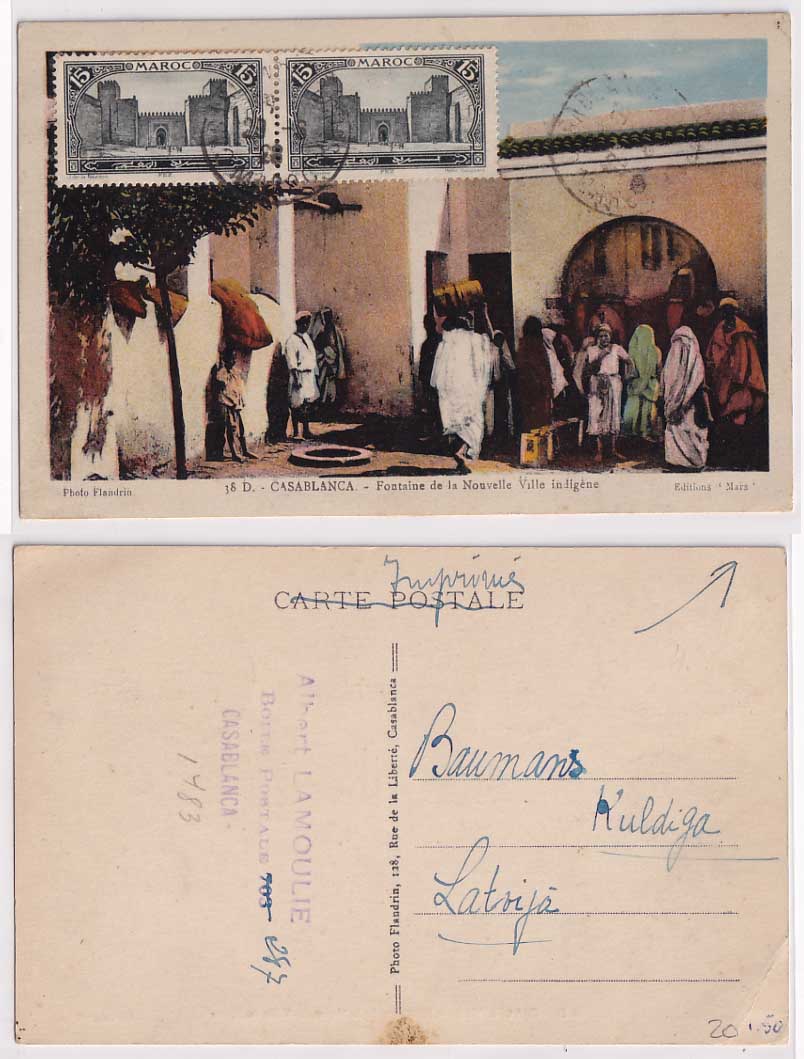 15 MAROC 15 15 MAROC 15
FEZ FEZ
Photo Flandrin 38 D. - CASABLANCA. - Fontaine de la Nouvelle Ville indigène Editions "Mars"
Imprimés
CARTE POSTALE
Albert LAMOULIE
BOITE POSTALE 703 287
CASABLANCA -
1483
Photo Flandrin, 128, Rue de la Liberté, Casablanca
Baumans
Kuldiga
Latvijā
20 1.50